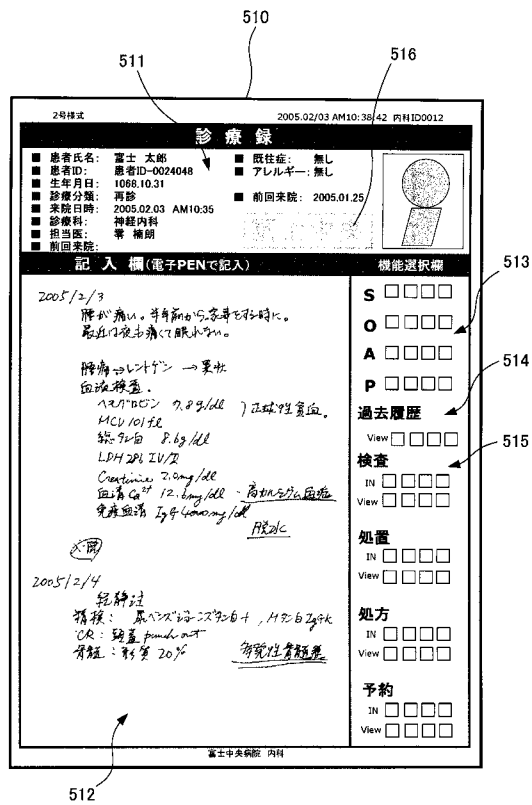 510
511
516
2号様式 2005.02/03 AM10:38:42 内科ID0012
診療録
■ 患者氏名: 富士 太郎
■ 患者ID: 患者ID-0024048
■ 生年月日: 1068.10.31
■ 診療分類: 再診
■ 来院日時: 2005.02.03 AM10:35
■ 診療科: 神経内科
■ 担当医: 零 楠朗
■ 前回来院:
■ 既往症: 無し
■ アレルギー: 無し
■ 前回来院: 2005.01.25
記入欄(電子PENで記入)
2005/2/3
腰が痛い。半年前から家事をする時に。
最近は夜も痛くて眠れない。
腰痛→レントゲン →異常
血液検査。
ヘモグロビン 7.8g/dl )正球性貧血。
MCV 101fl
総タンパク 8.6g/dl
LDH 286 IU/l
Creatinine 2.0mg/dl
血清Ca2+ 12.6mg/dl - 高カルシウム血症
免疫血清 IgG 4000mg/dl
脱水
入院
2005/2/4
精検: 尿ベンズジョーンズタン白+, Mタン白IgGκ
CR: 頭蓋 punch out
骨髄: 形質 20% 多発性骨髄腫
機能選択欄
S
O
A
P
過去履歴
View
検査
IN
View
処置
IN
View
処方
IN
View
予約
IN
View
513
514
515
富士中央病院 内科
512